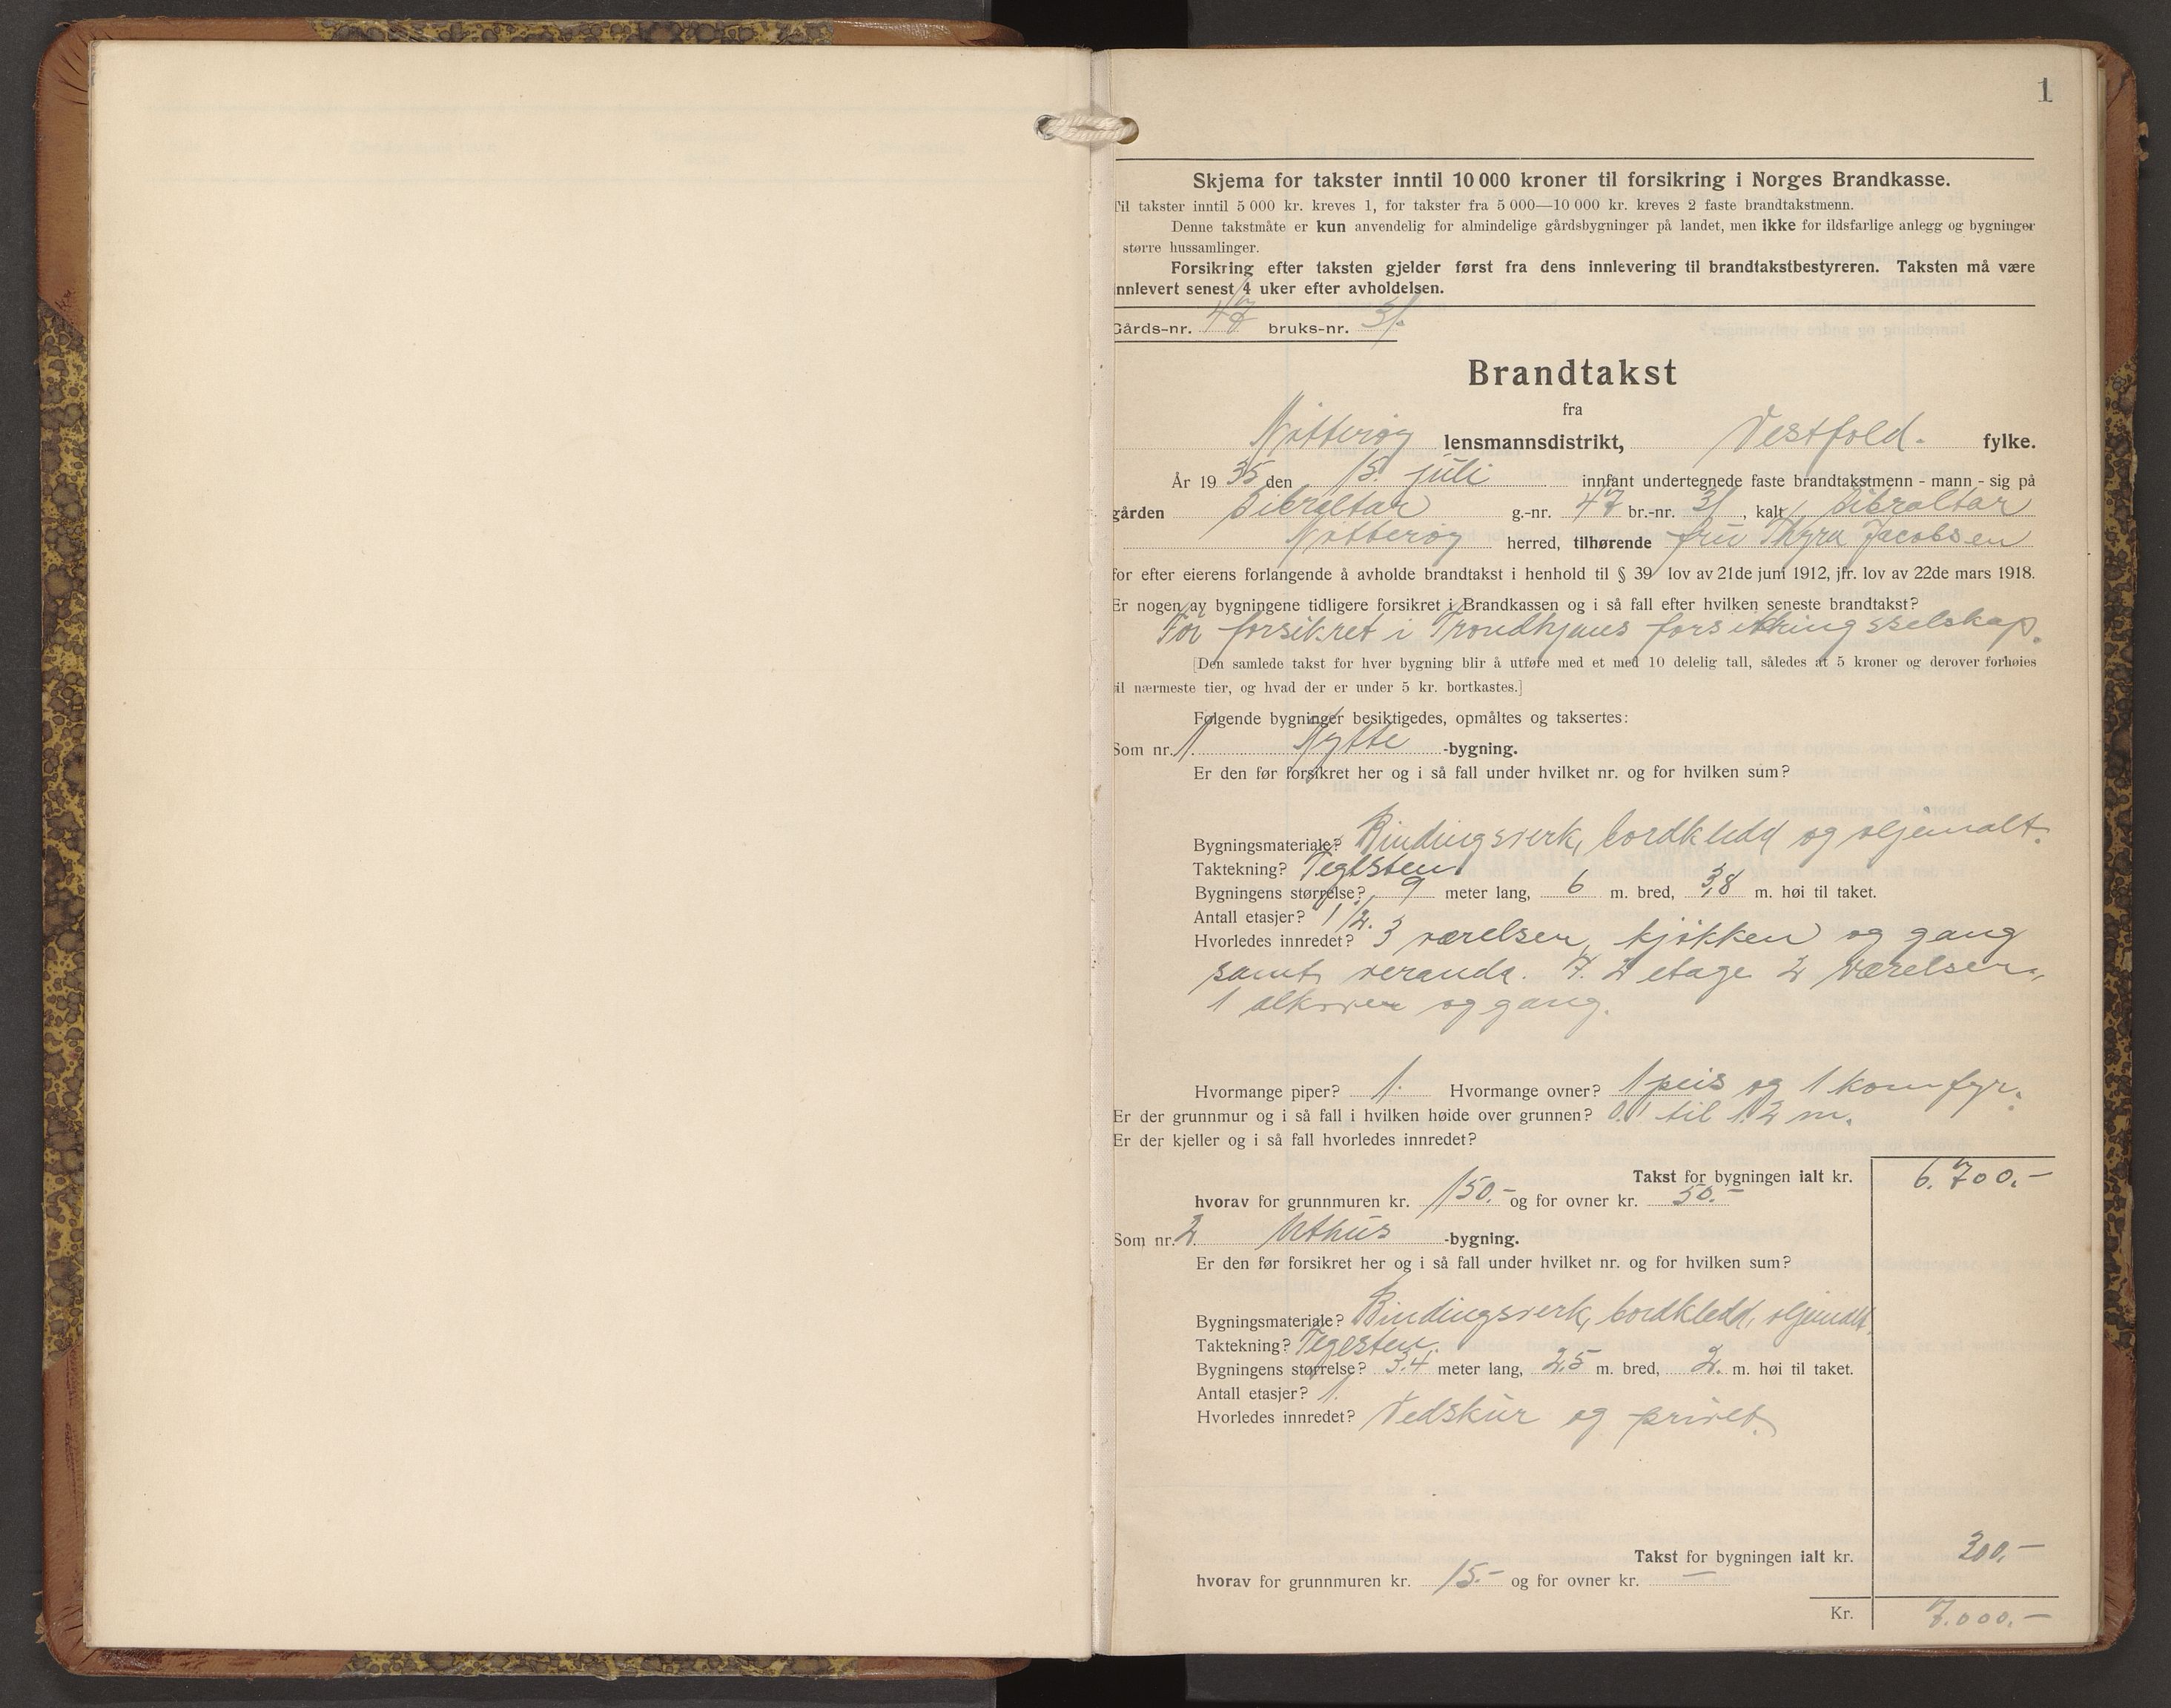 1
Skjema for takster inntil 10 000 kroner til forsikring i Norges Brandkasse.
Til takster inntil 5 000 kr. kreves 1, for takster fra 5 000—10 000 kr. kreves 2 faste brandtakstmenn.
Denne takstmåte er kun anvendelig for almindelige gårdsbygninger på landet, men ikke for ildsfarlige anlegg og bygninger
større hussamlinger.
Forsikring efter taksten gjelder først fra dens innlevering til brandtakstbestyreren. Taksten må være
innlevert senest 4 uker efter avholdelsen.
Gårds-nr. 47 bruks-nr. 31.
Brandtakst
fra
Nøtterøy lensmannsdistrikt, Vestfold. fylke.
År 1935 den 15. juli innfant undertegnede faste brandtakstmenn - mann - sig på
gården Gibraltar g.-nr. 47 br.-nr. 31, kalt Gibraltar
Nøtterøy herred, tilhørende fru Thyra Jacobsen
for efter eierens forlangende å avholde brandtakst i henhold til § 39 lov av 21de juni 1912, jfr. lov av 22de mars 1918.
Er nogen av bygningene tidligere forsikret i Brandkassen og i så fall efter hvilken seneste brandtakst?
Før forsikret i Trondhjems forsikringsselskap.
[Den samlede takst for hver bygning blir å utføre med et med 10 delelig tall, således at 5 kroner og derover forhøies
til nærmeste tier, og hvad der er under 5 kr. bortkastes.]
Følgende bygninger besiktigedes, opmåltes og taksertes:
Som nr. 1. Hytte -bygning.
Er den før forsikret her og i så fall under hvilket nr. og for hvilken sum?
Bygningsmateriale? Bindingsverk, bordkledd og oljemalt.
Taktekning? Teglsten
Bygningens størrelse? 9 meter lang, 6 m. bred, 3,8 m. høi til taket.
Antall etasjer? 1 1/2.
Hvorledes innredet? 3 værelser, kjøkken og gang
samt veranda. I 2 etage 2 værelser,
1 alkoven og gang.
Hvormange piper? 1. Hvormange ovner? 1 peis og 1 komfyr.
Er der grunnmur og i så fall i hvilken høide over grunnen? 0.1 til 1.2 m.
Er der kjeller og i så fall hvorledes innredet?
Takst for bygningen ialt kr. 6.700.-
hvorav for grunnmuren kr. 150.- og for ovner kr. 50.-
Som nr. 2. Uthus -bygning.
Er den før forsikret her og i så fall under hvilket nr. og for hvilken sum?
Bygningsmateriale? Bindingsverk, bordkledd, oljemalt,
Taktekning? Teglsten.
Bygningens størrelse? 3.4 meter lang, 2,5 m. bred, 2. m. høi til taket.
Antall etasjer? 1.
Hvorledes innredet? Vedskur og privet.
Takst for bygningen ialt kr. 300.-
hvorav for grunnmuren kr. 15.- og for ovner kr. —
Kr. 7.000.-